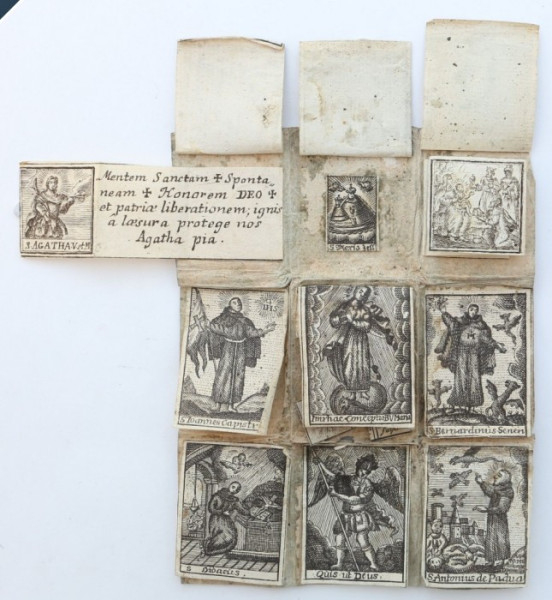 Mentem Sanctam ✠ Sponta
neam ✠ Honorem DEO ✠
et patriæ liberationem; ignis
a læsura protege nos
Agatha pia.
S AGATHA V. et M
S Maria
IHS
S Ioannes Capistr
Imác Conceptio B V Maria
S Bernardinus Senen
S Didacus.
Quis ut Deus.
S Antonius de Padua